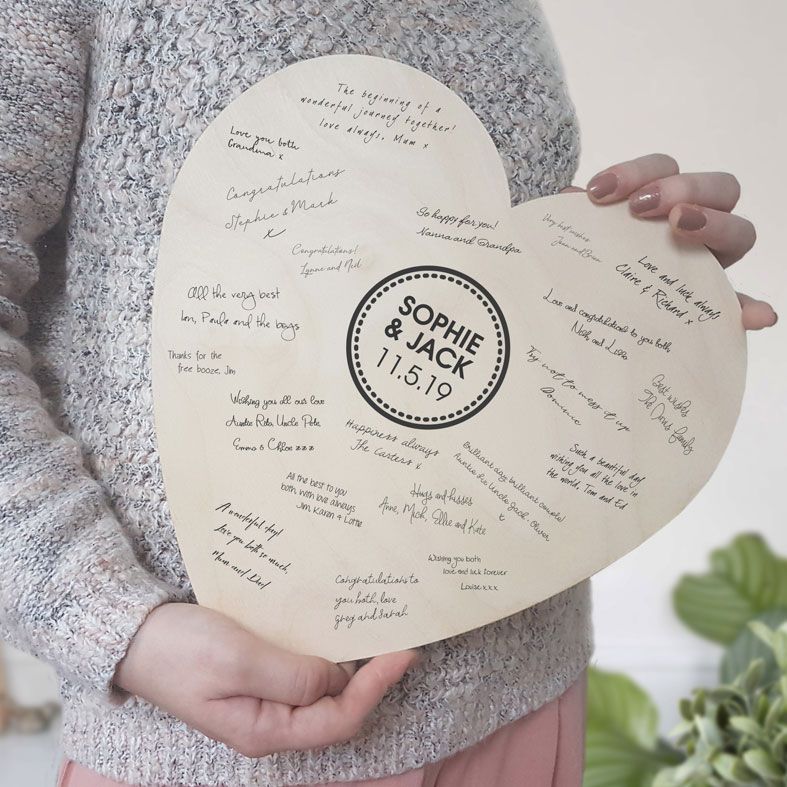 The beginning of a
wonderful journey together!
love always, Mum x
Love you both
Grandma x
Congratulations
Stephie & Mark
x
So happy for you!
Nanna and Grandpa
Very best wishes
Congratulations!
Lynne and Neil
Love and luck always
Claire & Richard x
All the very best
Ian, Paula and the boys
Love and congratulations to you both
Nish and
SOPHIE
& JACK
11.5.19
Thanks for the
free booze, Jim
Try not to mess it up
Dominic
Best wishes
The Family
Wishing you all our love
Auntie Rita Uncle Pete
Emma & Chloe xxx
Happiness always
The Carters x
Brilliant day brilliant
Auntie Uncle Jack, Oliver
x
Such a beautiful day
wishing you all the love in
the world, Tom and Ed
All the best to you
both with love always
Jim Karen & Lottie
Hugs and kisses
Anne, Mick, Ellie and Kate
A wonderful day!
love you both so much,
Mum and Dad
Wishing you both
love and luck forever
Louise xxx
Congratulations to
you both, love
greg and Sarah